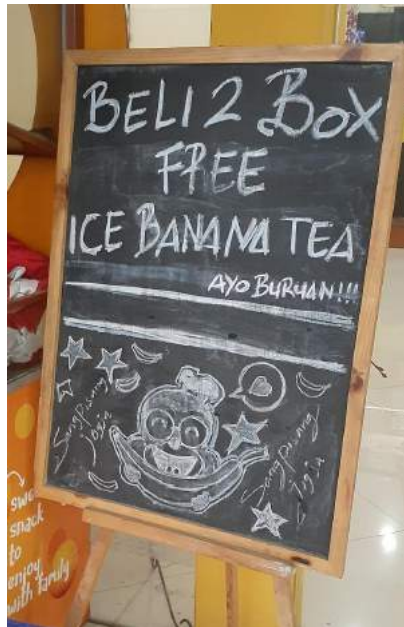 BELI 2 BOX
FREE
ICE BANANA TEA
AYO BURUAN!!!
Sangpisang
Jogja
Sangpisang
Jogja
snack
to
enjoy
with family